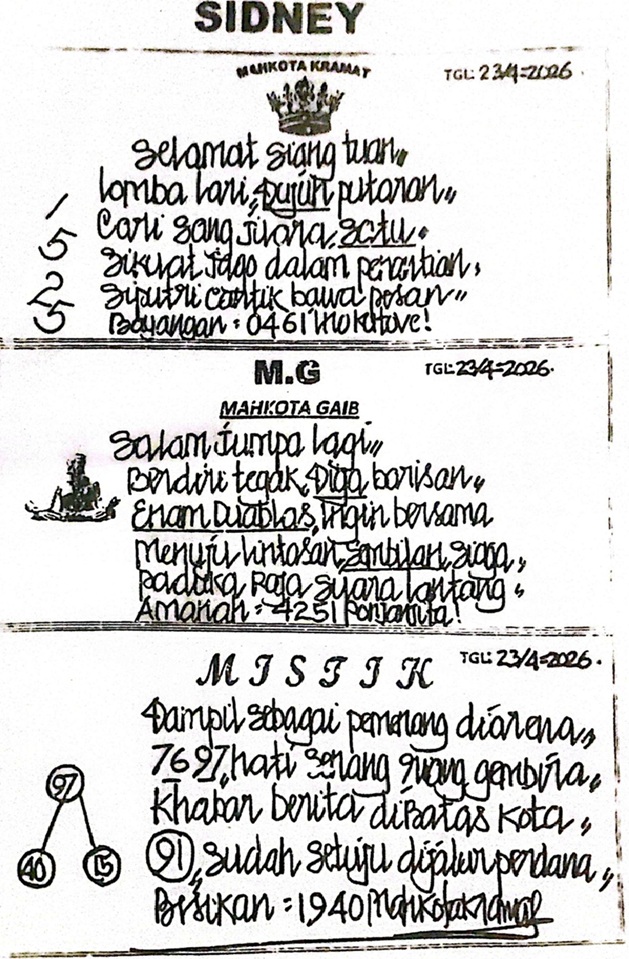 SIDNEY
MAHKOTA KRAMAT
TGL: 23/4=2026
Selamat siang tuan,,
lomba lari, tujuh putaran,,
1
Cari sang juara, satu.
5
Sikuat jago dalam penantian,
2
Siputri cantik bawa pesan,,
5
Bayangan = 0461
M.G
TGL: 23/4=2026.
MAHKOTA GAIB
Salam jumpa lagi,,
Berdiri tegak, tiga barisan,,
Enam Duablas, ingin bersama
menuju lintasan, sembilan, siaga,,
paduka Raja suara lantang,
Amanah = 4251
MISTIK
TGL: 23/4=2026.
Tampil sebagai pemenang diarena,,
7697, hati senang riang gembira,,
97
Khabar berita diBatas Kota,,
40 15
91,, sudah setuju dijalur perdana,,
Bisikan = 1940